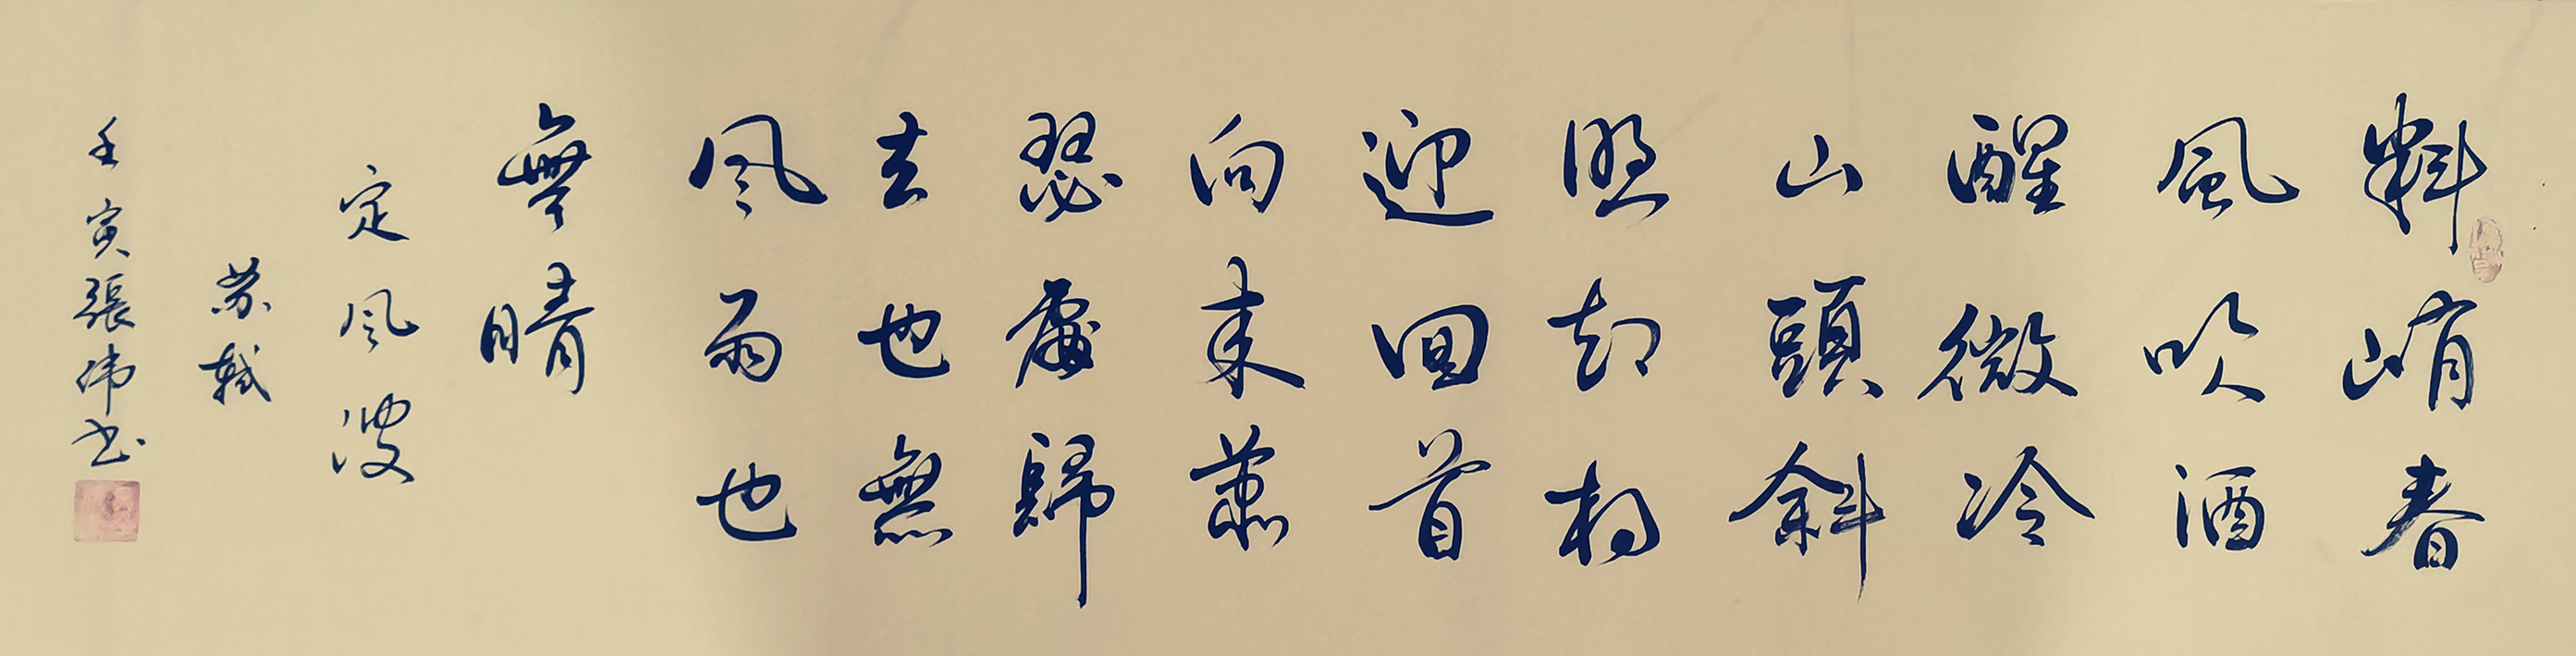 料峭春
風吹酒
醒微冷
山頭斜
照却相
迎回首
向来蕭
瑟處歸
去也無
风雨也
無晴
定风波
苏軾
壬寅張偉书